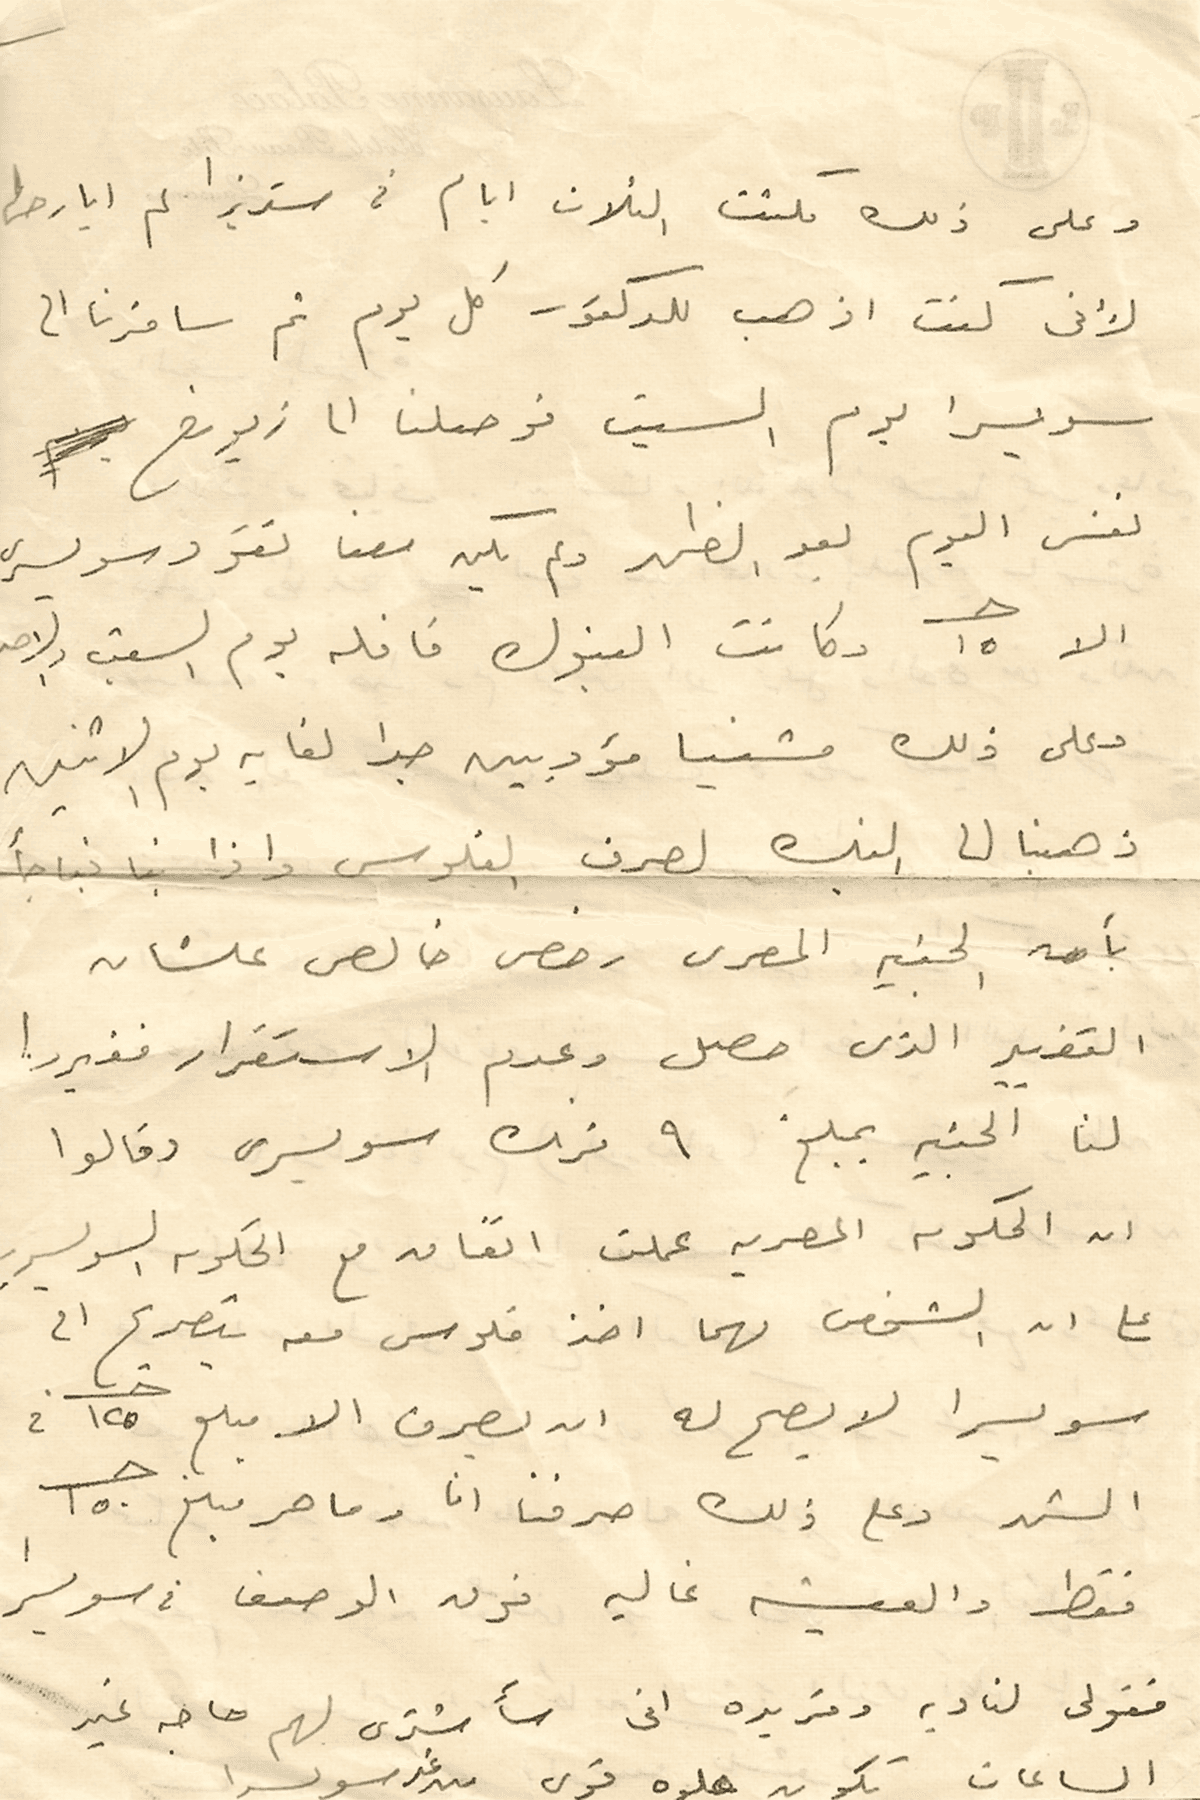 Lausanne Palace
وعلى ذلك مكثت الثلاث ايام في ستريزا لم ابارحها
لأني كنت اذهب للدكتور كل يوم ثم سافرنا الى
سويسرا يوم السبت فوصلنا الى زيورخ
نفس اليوم بعد الظهر ولم يكن معنا نقود سويسري
الا ١٥ جـ وكانت البنوك قافله يوم السبت والاحد
وعلى ذلك مشينا مؤدبين جدا لغاية يوم الاثنين
ذهبنا الى البنك لصرف الفلوس واذا بنا نفاجأ
بأن الجنيه المصرى رخص خالص علشان
التغيير الذى حصل وعدم الاستقرار فغيروا
لنا الجنيه بمبلغ ٩ فرنك سويسرى وقالوا
ان الحكومه المصريه عملت اتفاق مع الحكومه السويسريه
على ان الشخص مهما اخذ فلوس معه بتصريح الى
سويسرا لا يصح له ان يصرف الا مبلغ ١٢٥ جـ في
الشهر وعلى ذلك صرفنا انا وماهر مبلغ ١٥٠ جـ
فقط والعيشه غاليه فوق الوصف في سويسرا
فقولى لناديه وفريده انى سأشترى لهم حاجه غير
الساعات تكون حلوه قوى من غير سويسرا